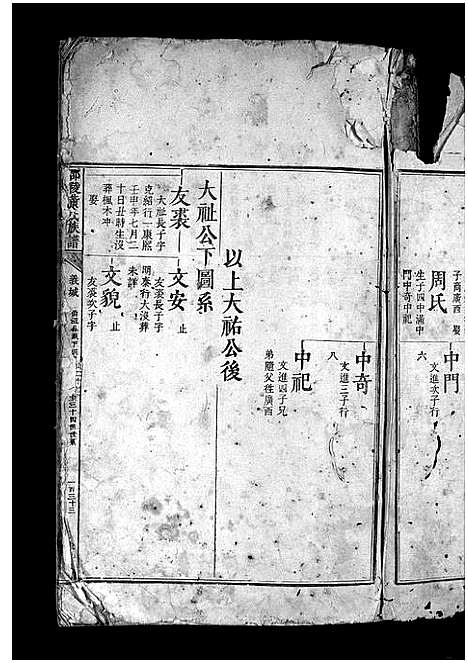 子商廣西 娶
周氏
生子四中滿中
門中奇中祀
中門
六 文進次子行
中奇
八 文進三子行
中祀
文進四子兄
弟隨父往廣西
以上大祐公後
大祉公下圖系
友裘
大祉長子字
克紹行一康熙
壬申年七月二
十日丑時生沒
葬楓木冲
娶
文安 止
友裘長子字
明泰行大沒葬
未詳
文貌 止
友裘次子字
邵陵黃氏族譜
義城
一百三十三